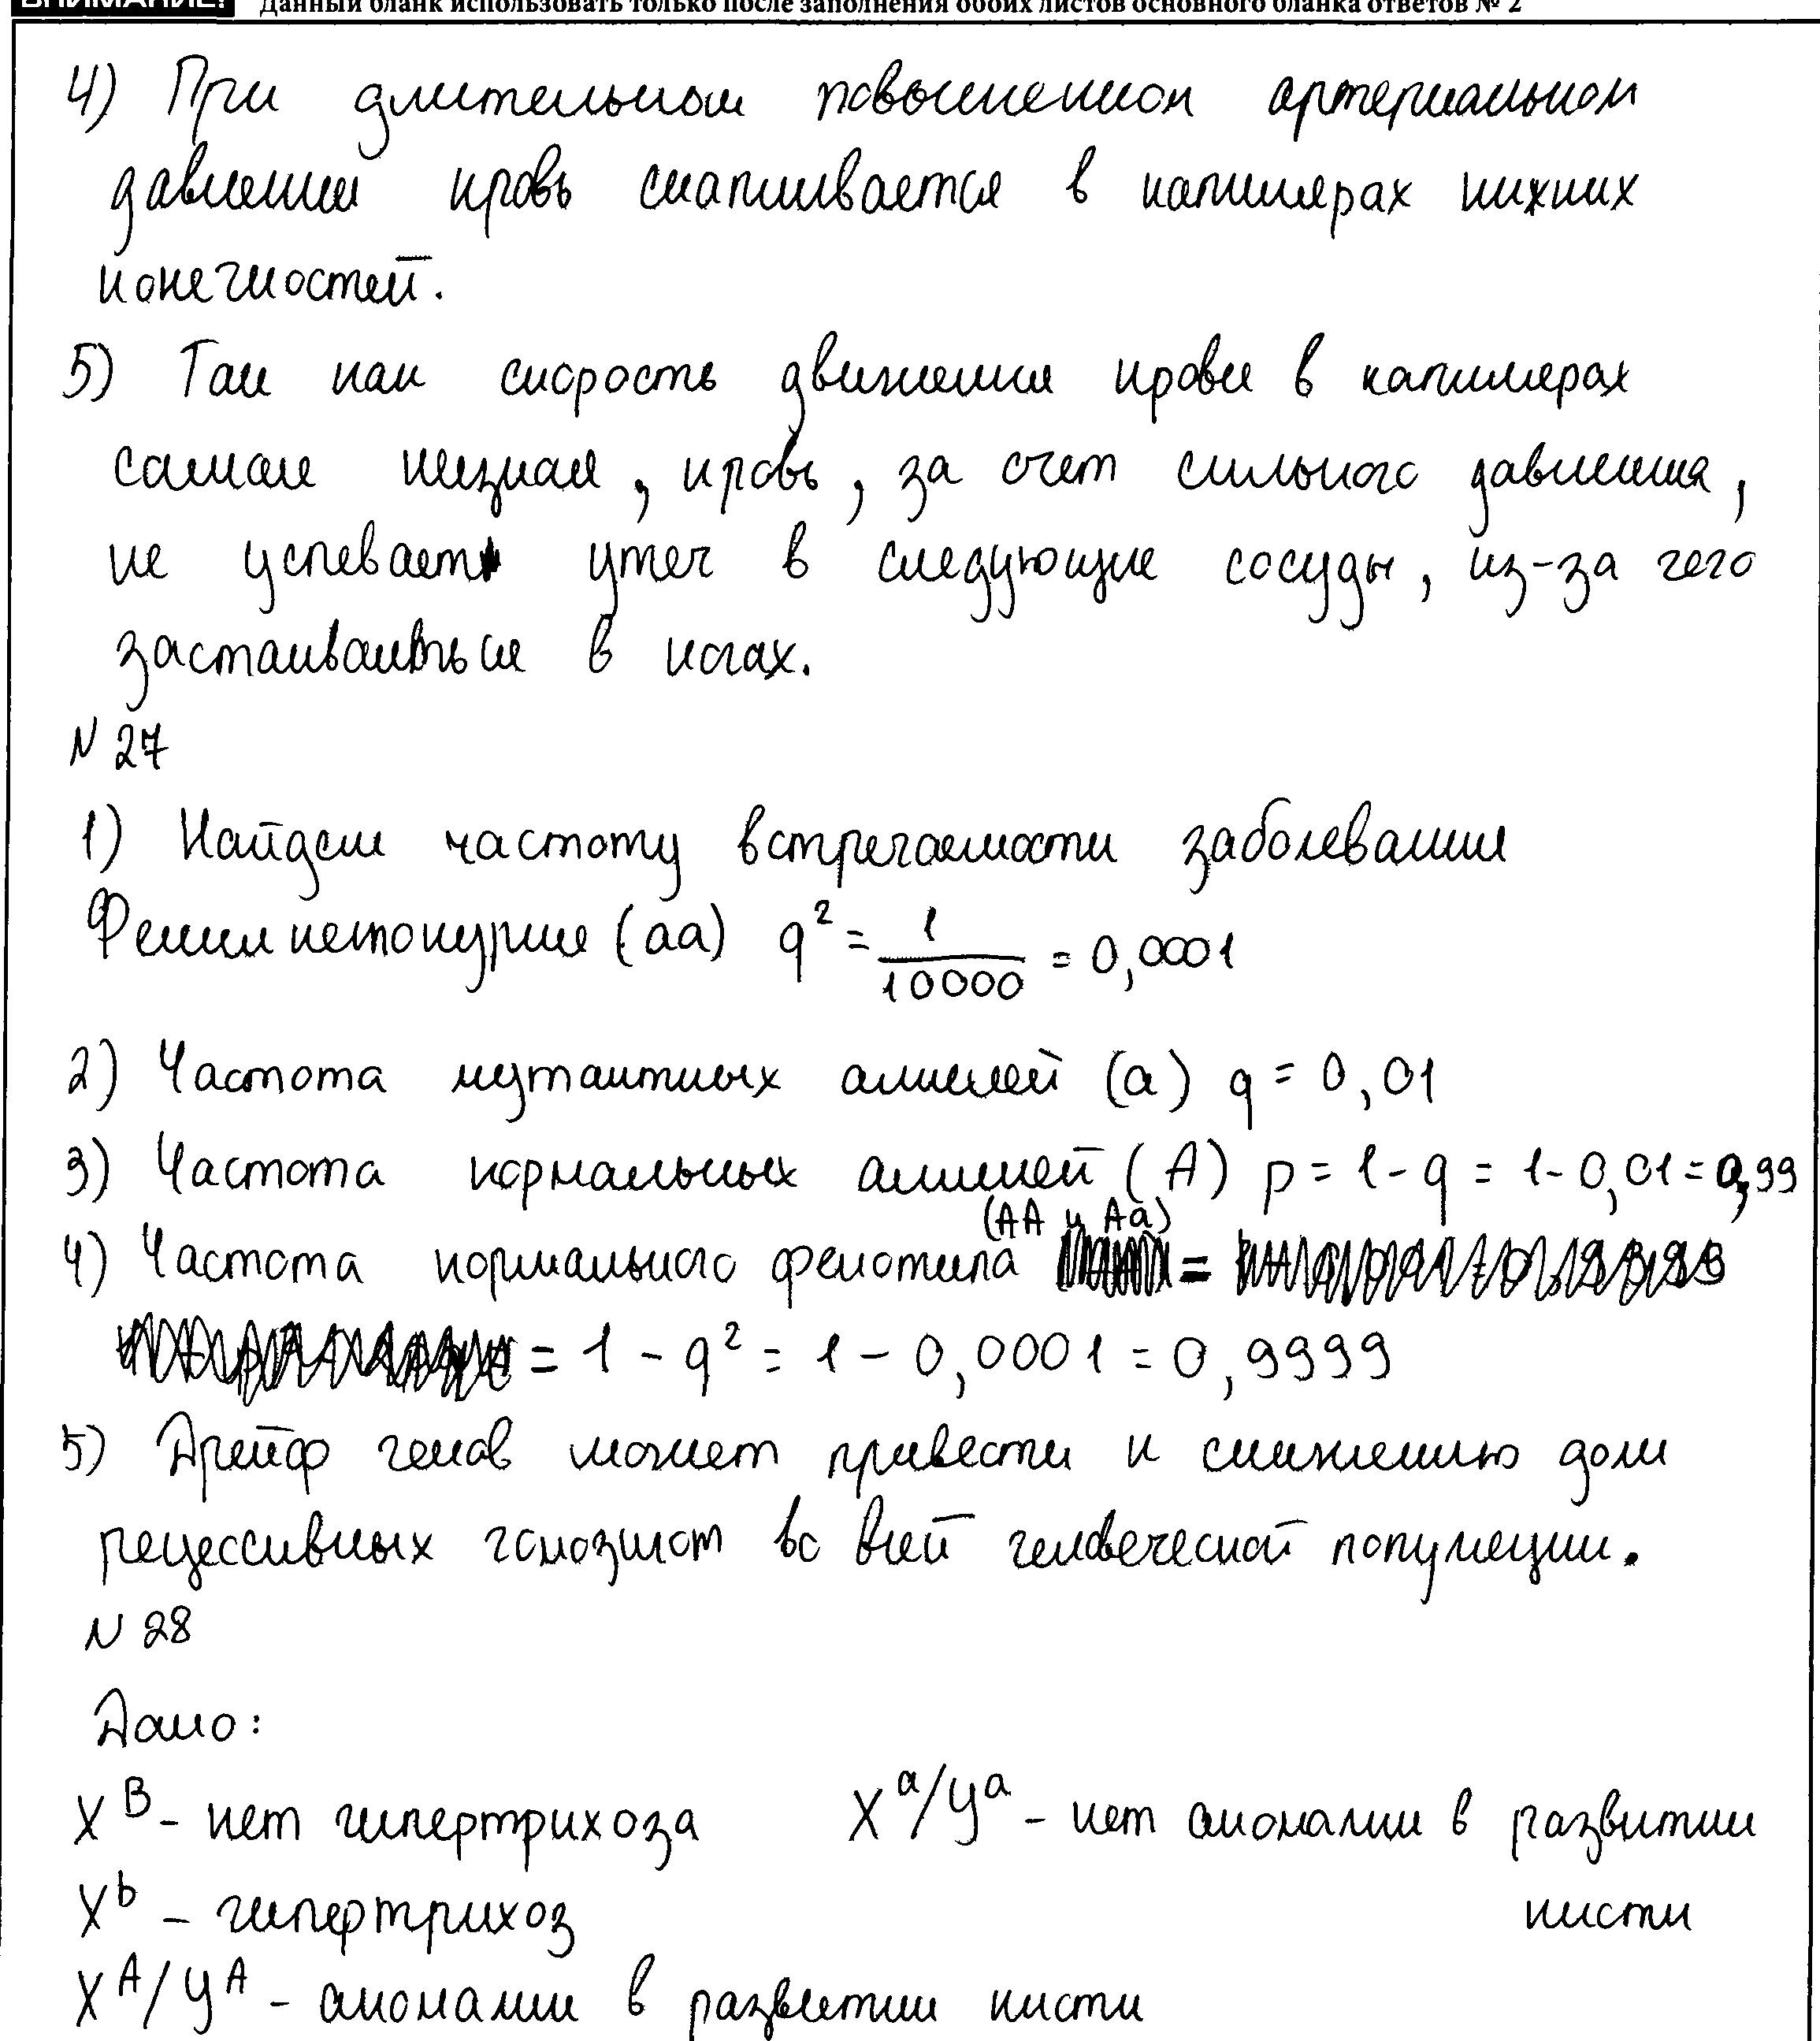 ВНИМАНИЕ! Данный бланк использовать только после заполнения обоих листов основного бланка ответов № 2
4) При длительном повышенном артериальном
давлении кровь скапливается в капиллярах нижних
конечностей.
5) Так как скорость движения крови в капилярах
самая низкая, кровь, за счет сильного давления,
не успевает утеч в следующие сосуды, из-за чего
застаиваеться в ногах.
N 27
1) Найдем частоту встречаемости заболевания
Фенилкетонурия (aa) q² = 1/10000 = 0,0001
2) Частота мутантных аллелей (a) q = 0,01
3) Частота нормальных аллелей (A) p = 1 - q = 1 - 0,01 = 0,99
4) Частота нормального фенотипа (AA и Aa)
= 1 - q² = 1 - 0,0001 = 0,9999
5) Дрейф генов может привести к снижению доли
рецессивных гомозигот во всей человеческой популяции.
N 28
Дано:
X^B - нет гипертрихоза X^a/Y^a - нет аномалии в развитии
X^b - гипертрихоз кисти
X^A/Y^A - аномалии в развитии кисти